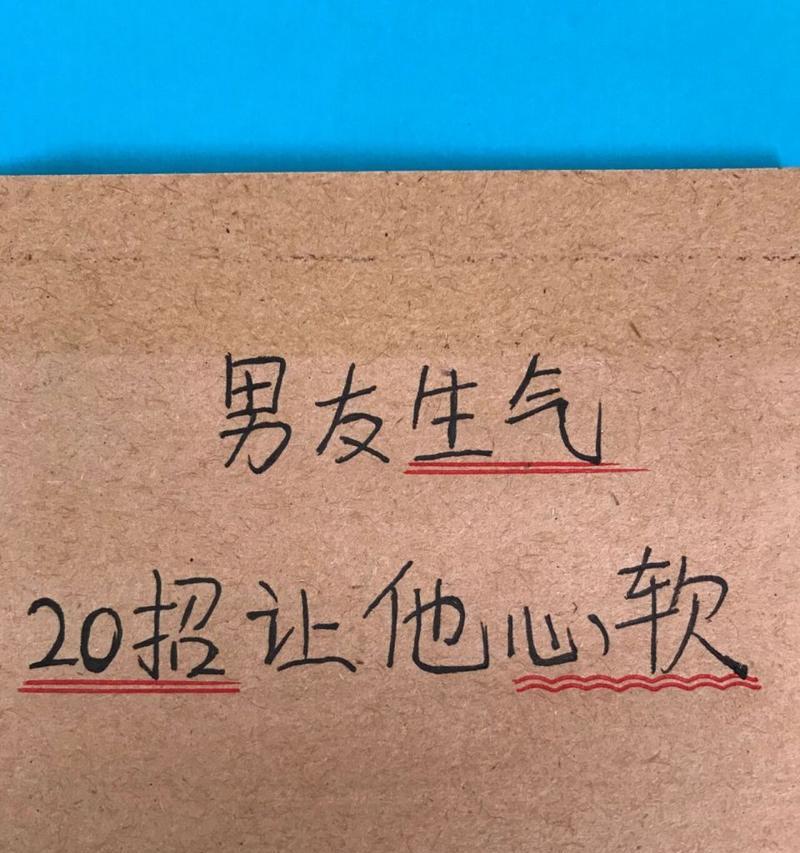 男友生气
20招让他心软